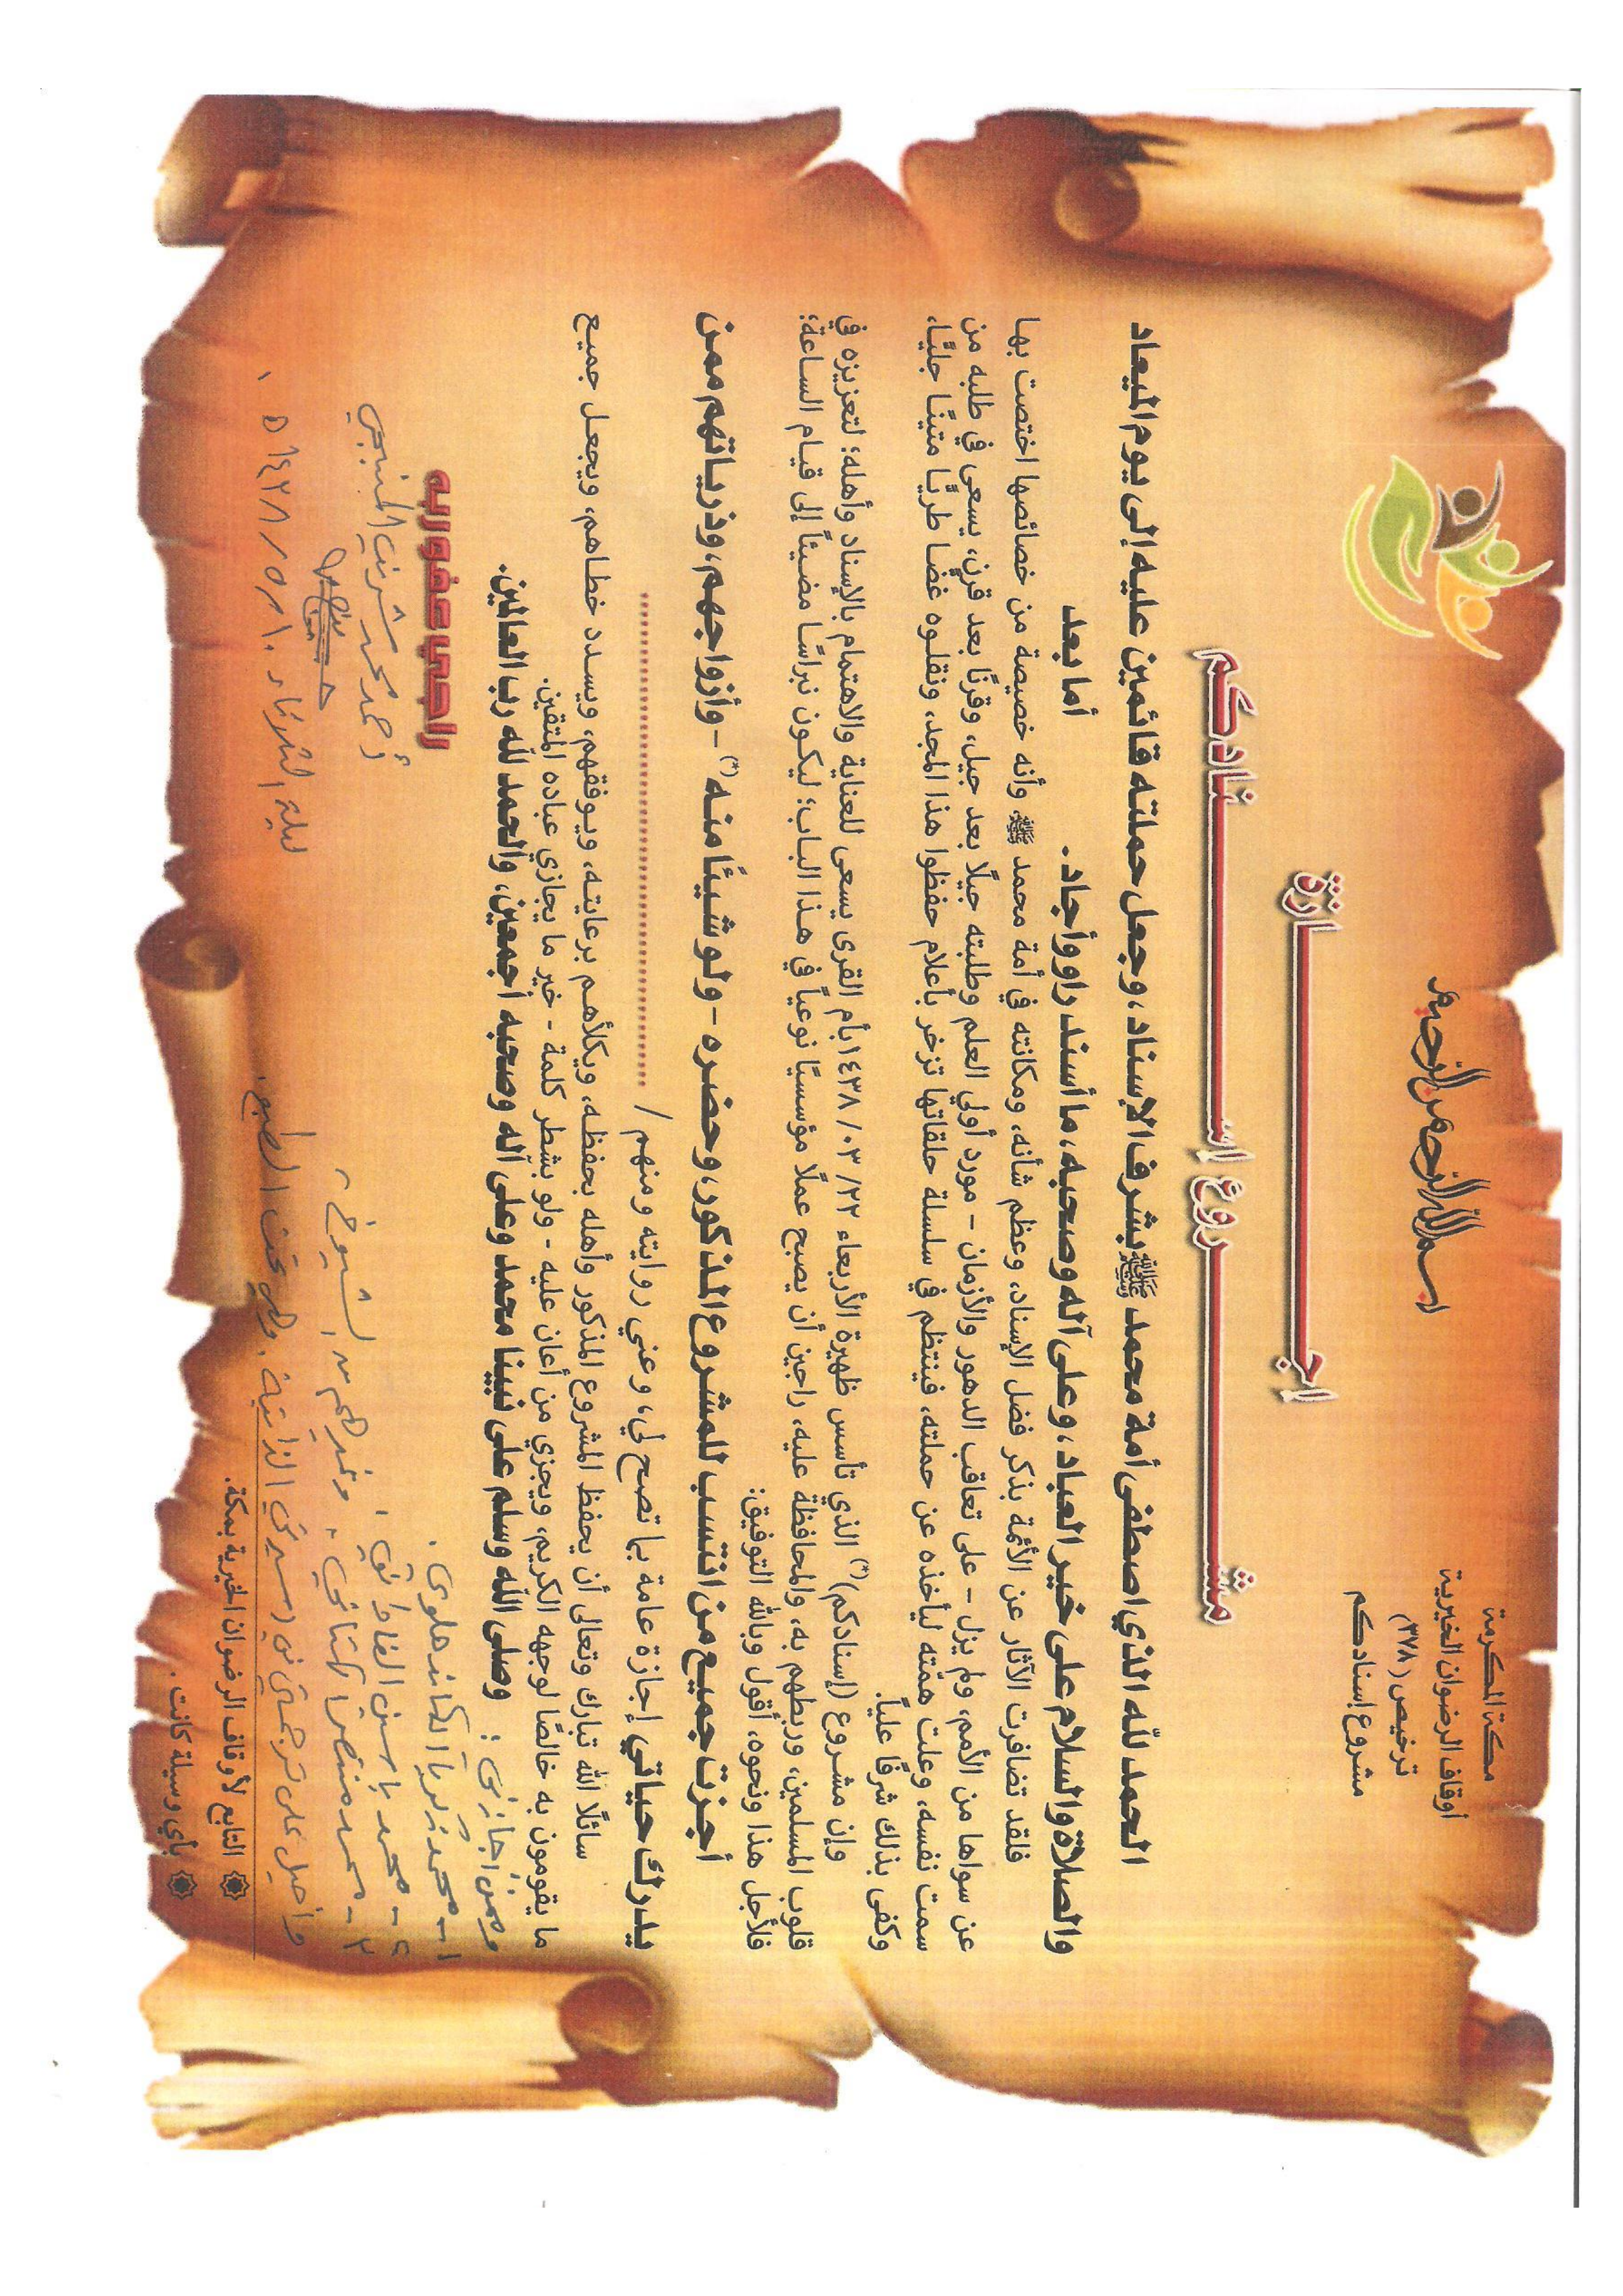 مكة المكرمة
أوقاف الرضوان الخيرية
ترخيص (٣٧٨)
مشروع إسنادكم
بسم الله الرحمن الرحيم
اجـــازة
مشـــروع إســـنادكم
الحمد لله الذي اصطفى أمة محمد ﷺ بشرف الإسناد، وجعل حملته قائمين عليه إلى يوم الميعاد
والصلاة والسلام على خير العباد، وعلى آله وصحبه، ما أسند راو وأجاد. أما بعد
فلقد تضافرت الآثار عن الأئمة بذكر فضل الإسناد، وعظم شأنه، ومكانته في أمة محمد ﷺ، وأنه خصيصة من خصائصها اختصت بها
عن سواها من الأمم، ولم يزل - على تعاقب الدهور والأزمان - مورد أولي العلم وطلبته جيلًا بعد جيل، وقرنًا بعد قرن، يسعى في طلبه من
سمت نفسه، وعلت همّته ليأخذه عن حملته، فينتظم في سلسلة حلقاتها تزخر بأعلام حفظوا هذا المجد، ونقلوه غضا طريًا متينًا جليًا،
وكفى بذلك شرفًا عليًا.
وإن مشروع (إسنادكم)(*) الذي تأسس ظهيرة الأربعاء ٢٢/ ٠٣/ ١٤٣٨ بأم القرى يسعى للعناية والاهتمام بالإسناد وأهله؛ لتعزيزه في
قلوب المسلمين، وربطهم به، والمحافظة عليه، راجين أن يصبح عملًا مؤسسيًا نوعياً في هذا الباب؛ ليكون نبراسًا مضيئاً إلى قيام الساعة؛
فلأجل هذا ونحوه، أقول وبالله التوفيق:
أجزت جميع من انتسب للمشروع المذكور، وحضره - ولو شيئًا منه(*) - وأزواجهم، وذرياتهم ممن
يدرك حياتي إجازة عامة بما تصح لي، وعني روايته ومنهم / ..........................................
سائلًا الله تبارك وتعالى أن يحفظ المشروع المذكور وأهله بحفظه، ويكلأهم برعايته، ويوفقهم، ويسدد خطاهم، ويجعل جميع
ما يقومون به خالصًا لوجهه الكريم، ويجزي من أعان عليه - ولو بشطر كلمة - خير ما يجازي عباده المتقين.
وصلى الله وسلم على نبينا محمد وعلى آله وصحبه أجمعين، والحمد لله رب العالمين.
وممن أجازني:
١- محمد زكريا الكاندهلوي.
٢- محمد ياسين الفاداني،
٣- محمد منتصر الكتاني. وغيرهم من الشيوخ،
وأحيل على ترجمتي في سيرتي الذاتية. وهي تحت الطبع.
راجي عفو ربه
أحمد محمد شريف
ليلة الثلاثاء ١٠/ ٥/ ١٤٣٨ه
التابع لأوقاف الرضوان الخيرية بمكة.
بأي وسيلة كانت.